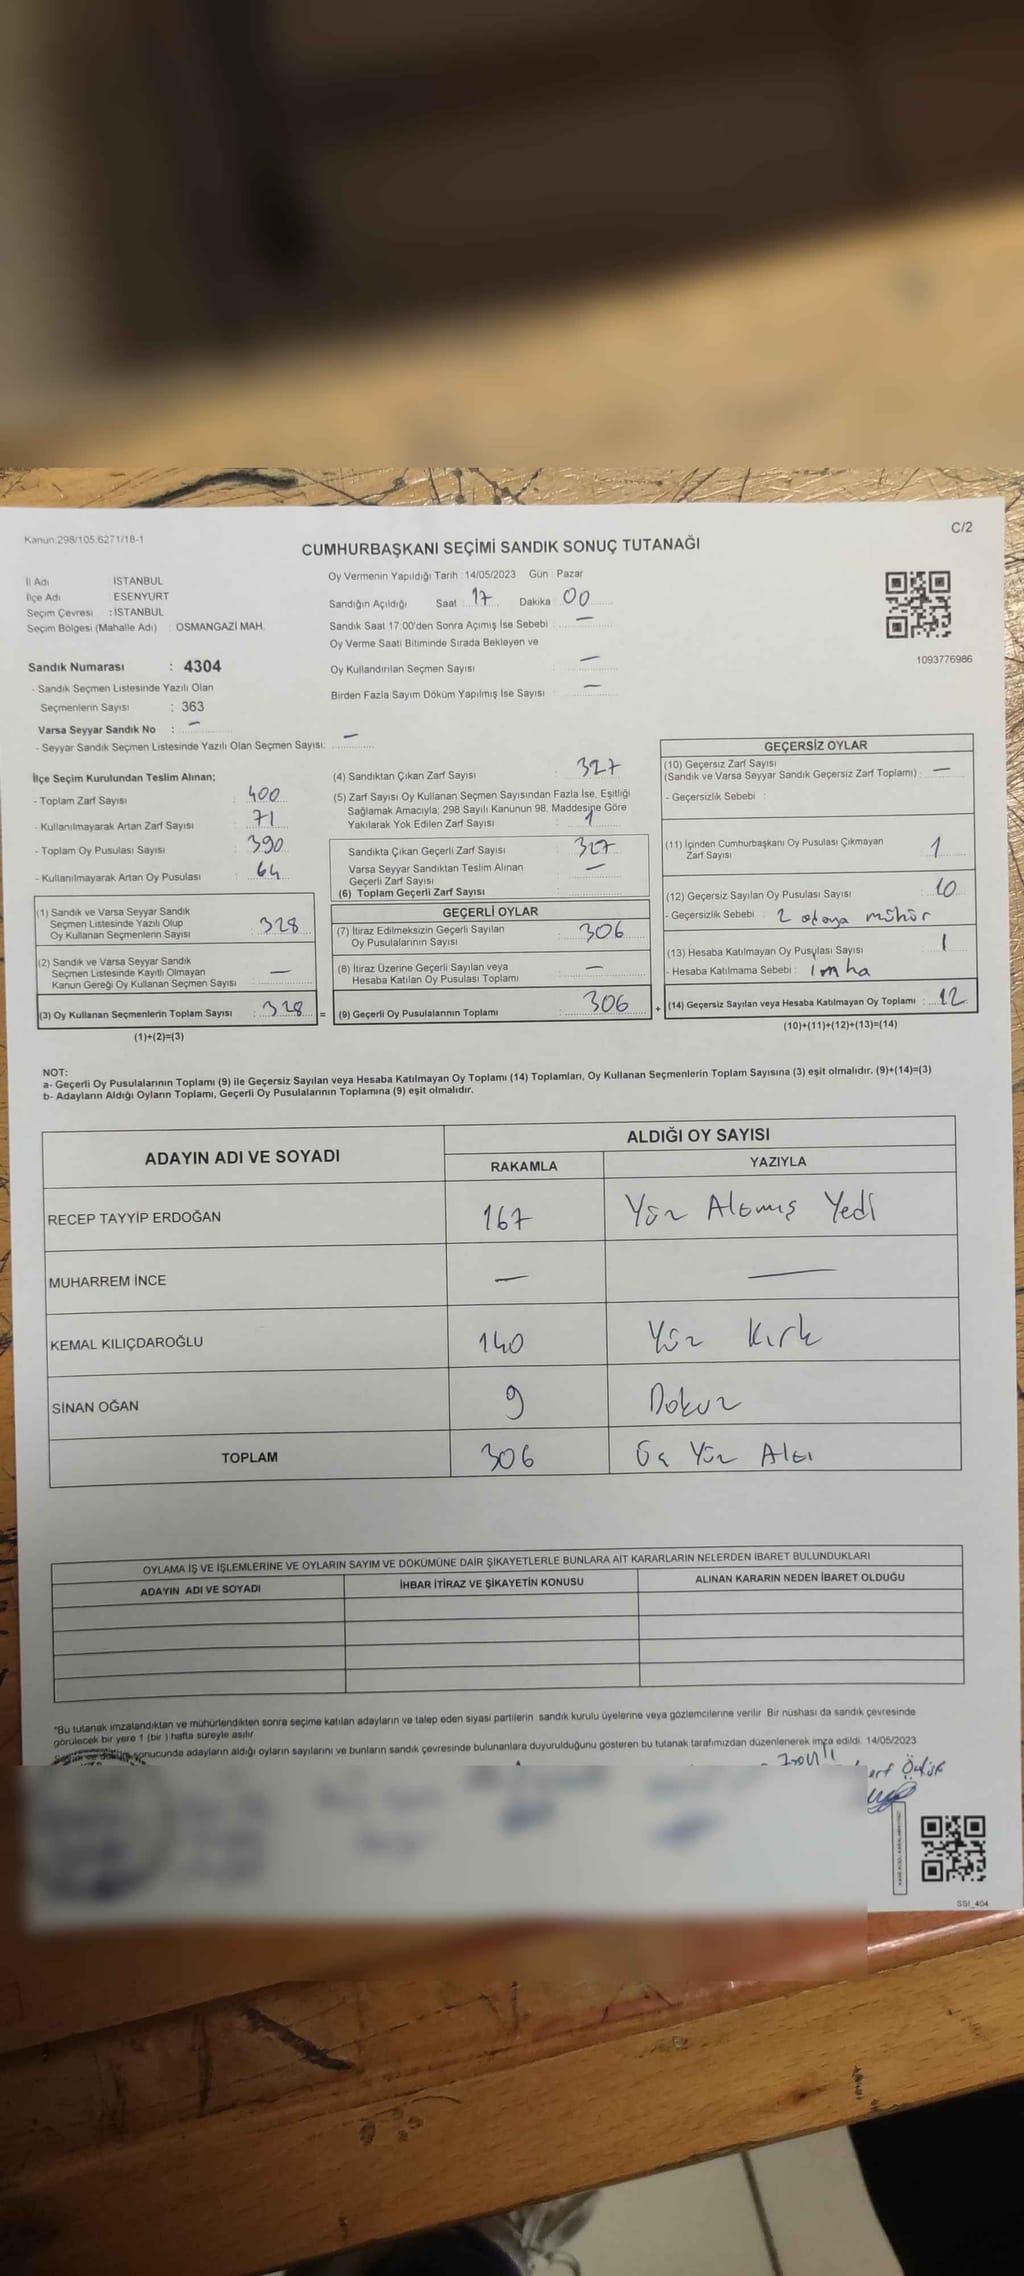 C/2
Kanun:298/105.6271/18-1
CUMHURBAŞKANI SEÇİMİ SANDIK SONUÇ TUTANAĞI
İl Adı İSTANBUL
İlçe Adı ESENYURT
Seçim Çevresi : İSTANBUL
Seçim Bölgesi (Mahalle Adı) : OSMANGAZİ MAH.
Sandık Numarası : 4304
- Sandık Seçmen Listesinde Yazılı Olan
Seçmenlerin Sayısı : 363
Varsa Seyyar Sandık No : –
- Seyyar Sandık Seçmen Listesinde Yazılı Olan Seçmen Sayısı: –
Oy Vermenin Yapıldığı Tarih : 14/05/2023 Gün : Pazar
Sandığın Açıldığı Saat 17 Dakika 00
Sandık Saat 17:00'den Sonra Açımış İse Sebebi : –
Oy Verme Saati Bitiminde Sırada Bekleyen ve
Oy Kullandırılan Seçmen Sayısı : –
Birden Fazla Sayım Döküm Yapılmış İse Sayısı : –
1093776986
İlçe Seçim Kurulundan Teslim Alınan;
- Toplam Zarf Sayısı : 400
- Kullanılmayarak Artan Zarf Sayısı : 71
- Toplam Oy Pusulası Sayısı : 390
- Kullanılmayarak Artan Oy Pusulası : 64
(1) Sandık ve Varsa Seyyar Sandık
Seçmen Listesinde Yazılı Olup
Oy Kullanan Seçmenlerin Sayısı : 328
(2) Sandık ve Varsa Seyyar Sandık
Seçmen Listesinde Kayıtlı Olmayan
Kanun Gereği Oy Kullanan Seçmen Sayısı : –
(3) Oy Kullanan Seçmenlerin Toplam Sayısı : 328 =
(1)+(2)=(3)
(4) Sandıktan Çıkan Zarf Sayısı : 327
(5) Zarf Sayısı Oy Kullanan Seçmen Sayısından Fazla İse, Eşitliği
Sağlamak Amacıyla; 298 Sayılı Kanunun 98. Maddesine Göre
Yakılarak Yok Edilen Zarf Sayısı : 1
Sandıkta Çıkan Geçerli Zarf Sayısı : 327
Varsa Seyyar Sandıktan Teslim Alınan
Geçerli Zarf Sayısı : –
(6) Toplam Geçerli Zarf Sayısı :
GEÇERLİ OYLAR
(7) İtiraz Edilmeksizin Geçerli Sayılan
Oy Pusulalarının Sayısı : 306
(8) İtiraz Üzerine Geçerli Sayılan veya
Hesaba Katılan Oy Pusulası Toplamı : –
(9) Geçerli Oy Pusulalarının Toplamı : 306 +
GEÇERSİZ OYLAR
(10) Geçersiz Zarf Sayısı
(Sandık ve Varsa Seyyar Sandık Geçersiz Zarf Toplamı) : –
- Geçersizlik Sebebi :
(11) İçinden Cumhurbaşkanı Oy Pusulası Çıkmayan
Zarf Sayısı : 1
(12) Geçersiz Sayılan Oy Pusulası Sayısı : 10
- Geçersizlik Sebebi : 2 adaya mühür
(13) Hesaba Katılmayan Oy Pusulası Sayısı : 1
- Hesaba Katılmama Sebebi : imha
(14) Geçersiz Sayılan veya Hesaba Katılmayan Oy Toplamı : 12
(10)+(11)+(12)+(13)=(14)
NOT:
a- Geçerli Oy Pusulalarının Toplamı (9) ile Geçersiz Sayılan veya Hesaba Katılmayan Oy Toplamı (14) Toplamları, Oy Kullanan Seçmenlerin Toplam Sayısına (3) eşit olmalıdır. (9)+(14)=(3)
b- Adayların Aldığı Oyların Toplamı, Geçerli Oy Pusulalarının Toplamına (9) eşit olmalıdır.
ADAYIN ADI VE SOYADI ALDIĞI OY SAYISI
RAKAMLA YAZIYLA
RECEP TAYYİP ERDOĞAN 167 Yüz Altmış Yedi
MUHARREM İNCE – –
KEMAL KILIÇDAROĞLU 140 Yüz Kırk
SİNAN OĞAN 9 Dokuz
TOPLAM 306 Üç Yüz Altı
OYLAMA İŞ VE İŞLEMLERİNE VE OYLARIN SAYIM VE DÖKÜMÜNE DAİR ŞİKAYETLERLE BUNLARA AİT KARARLARIN NELERDEN İBARET BULUNDUKLARI
ADAYIN ADI VE SOYADI İHBAR İTİRAZ VE ŞİKAYETİN KONUSU ALINAN KARARIN NEDEN İBARET OLDUĞU
*Bu tutanak imzalandıktan ve mühürlendikten sonra seçime katılan adayların ve talep eden siyasi partilerin sandık kurulu üyelerine veya gözlemcilerine verilir. Bir nüshası da sandık çevresinde
görülecek bir yere 1 (bir ) hafta süreyle asılır
sonucunda adayların aldığı oyların sayılarını ve bunların sandık çevresinde bulunanlara duyurulduğunu gösteren bu tutanak tarafımızdan düzenlenerek imza edildi. 14/05/2023
SSI_404